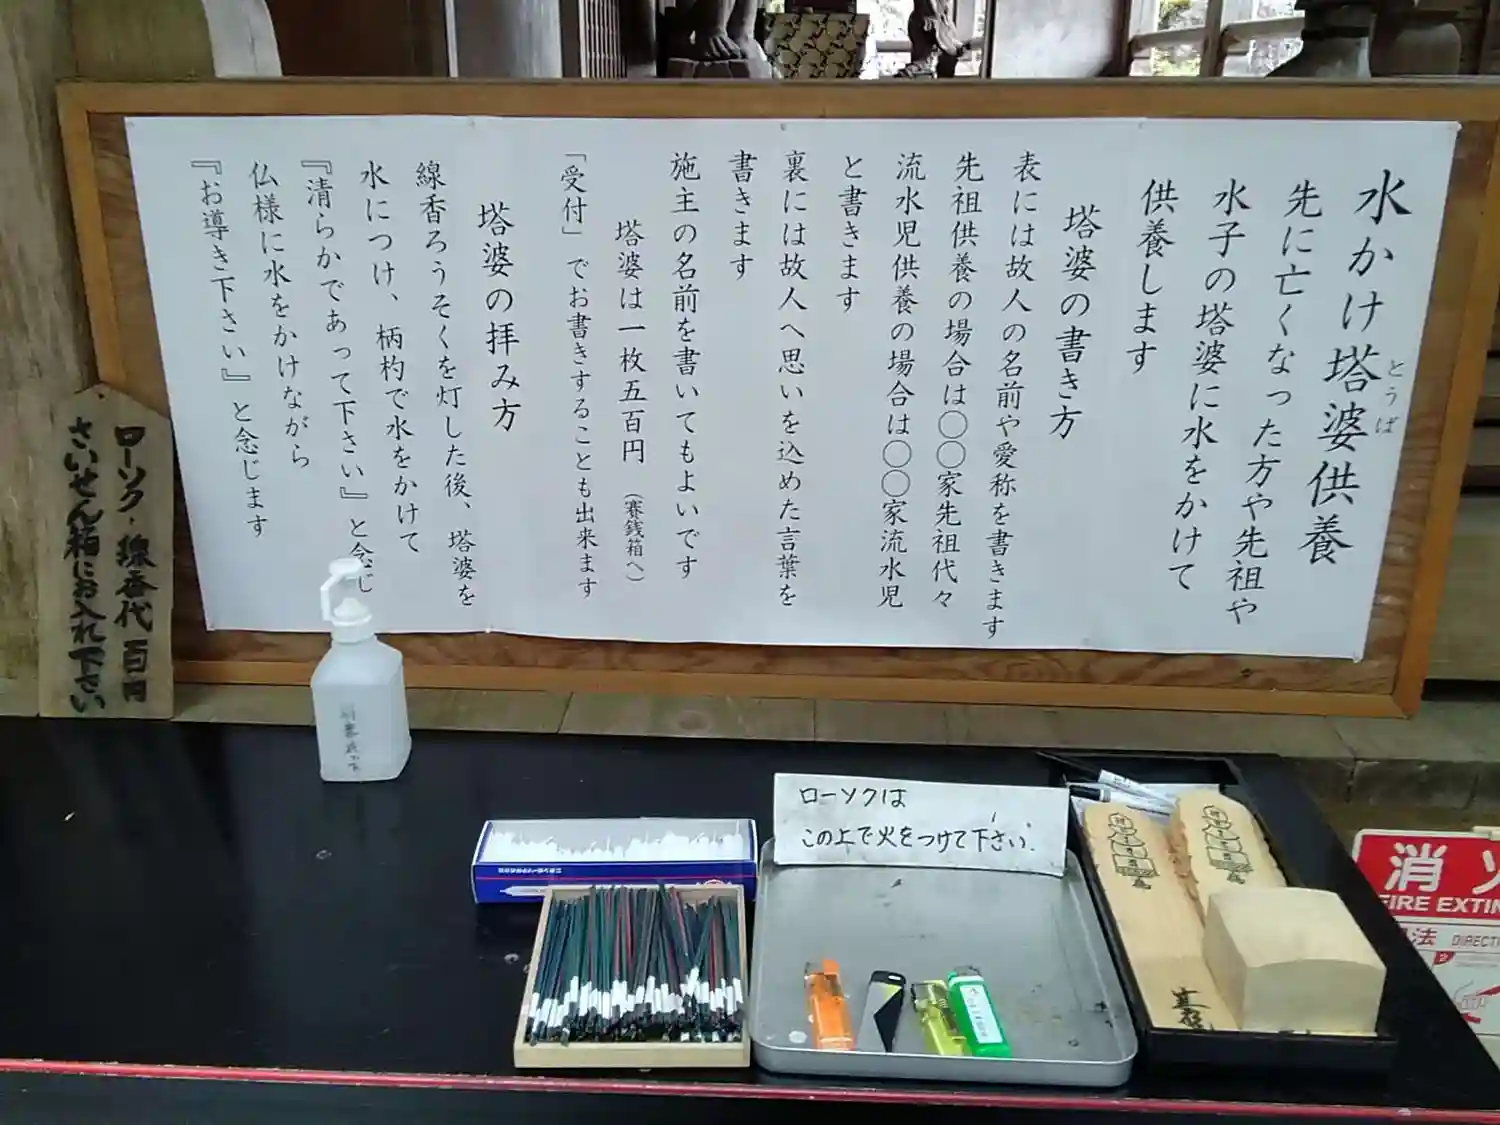 水かけ塔婆供養
とうば
先に亡くなった方や先祖や
水子の塔婆に水をかけて
供養します
塔婆の書き方
表には故人の名前や愛称を書きます
先祖供養の場合は〇〇家先祖代々
流水児供養の場合は〇〇家流水児
と書きます
裏には故人へ思いを込めた言葉を
書きます
施主の名前を書いてもよいです
塔婆は一枚五百円 (賽銭箱へ)
「受付」でお書きすることも出来ます
塔婆の拝み方
線香ろうそくを灯した後、塔婆を
水につけ、柄杓で水をかけて
『清らかであって下さい』と念じ
仏様に水をかけながら
『お導き下さい』と念じます
ローソク・線香代 百円
さいせん箱にお入れ下さい
ローソクは
この上で火をつけて下さい.
消火
FIRE EXTIN
法 DIRECTI
2